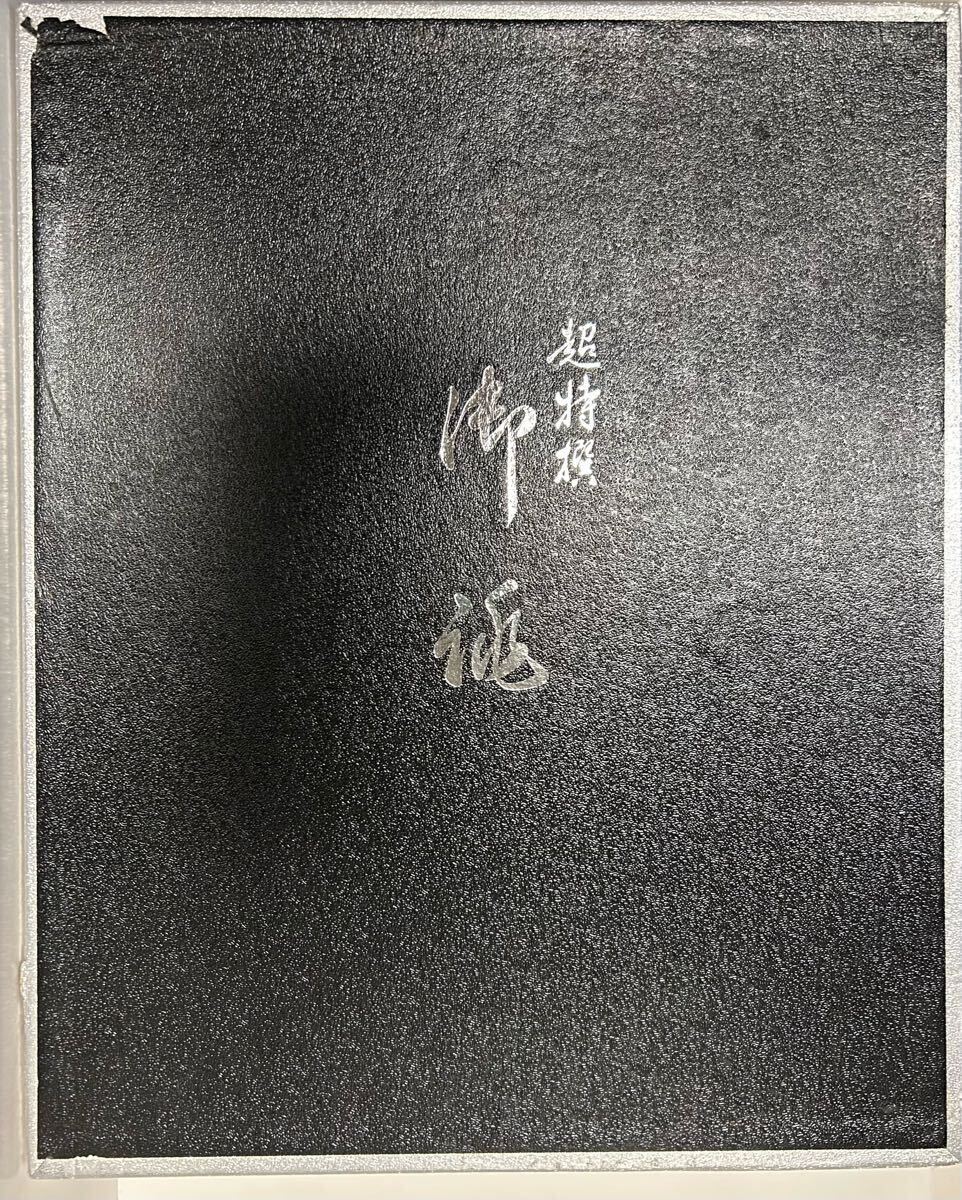 超特撰
御誂